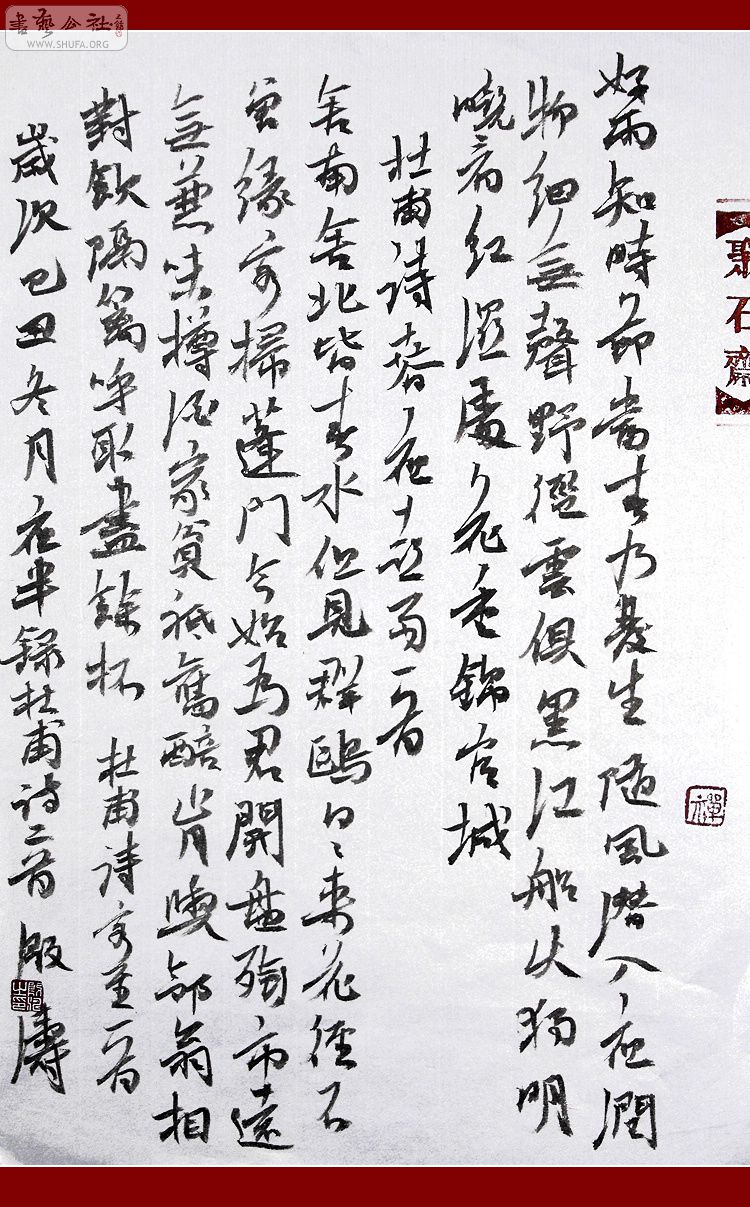 書藝公社
WWW.SHUFA.ORG
聚石齋
禪
好雨知時節當春乃發生隨風潛入夜潤
物細無聲野徑雲俱黑江船火獨明
曉看紅濕處花重錦官城
杜甫詩春夜喜雨一首
舍南舍北皆春水但見群鷗日〻來花徑不
曾緣客掃蓬門今始為君開盤飧市遠
無兼味樽酒家貧祗舊醅肯與鄰翁相
對飲隔籬呼取盡餘杯 杜甫詩客至一首
歲次己丑冬月夜半錄杜甫詩二首 殷濤